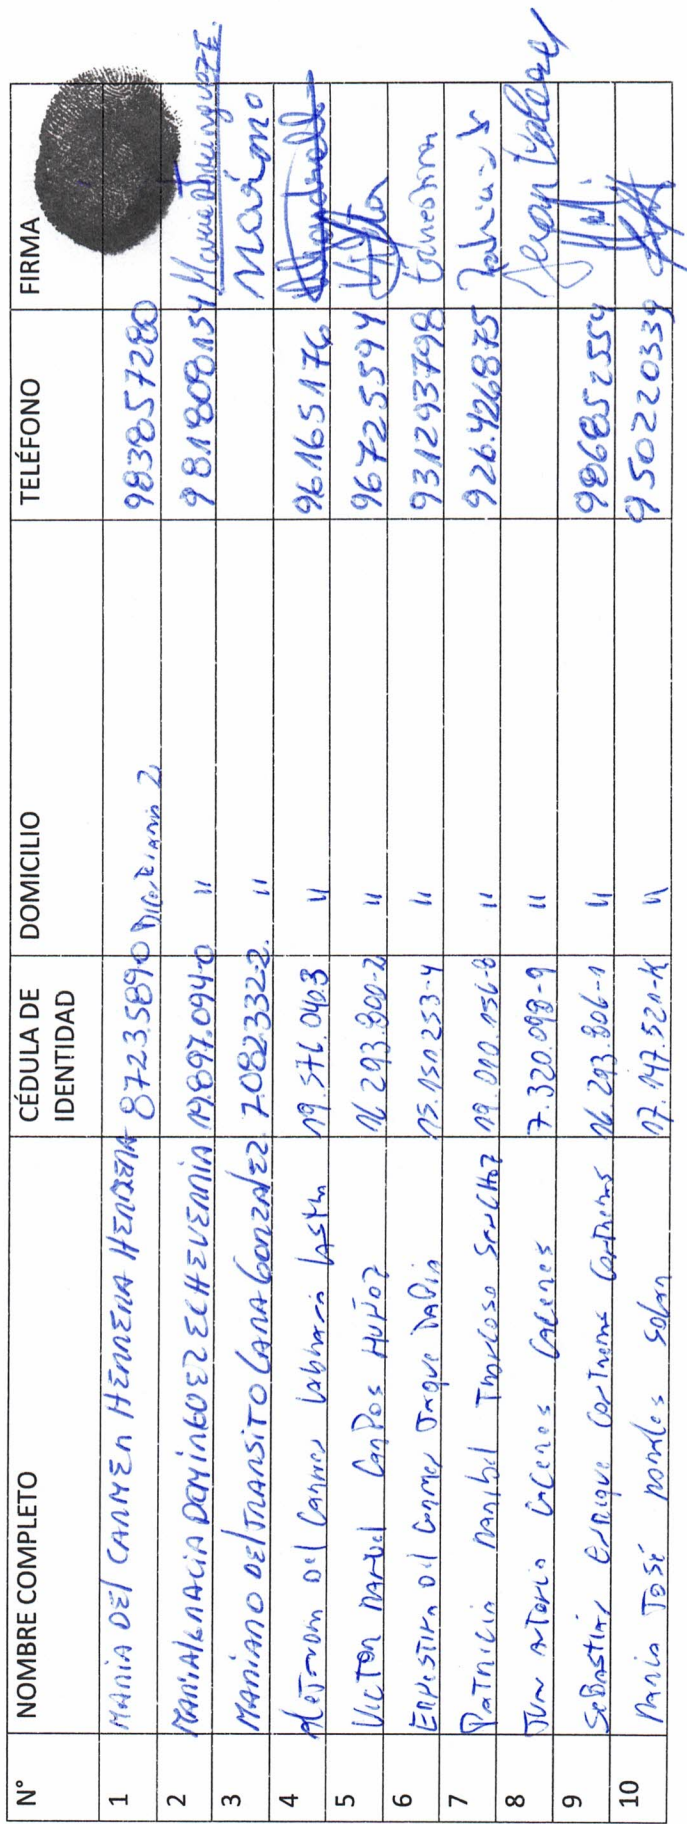 N° NOMBRE COMPLETO CÉDULA DE IDENTIDAD DOMICILIO TELÉFONO FIRMA
1 MARIA DEL CARMEN HERRERA HERRERA 8723.589-0 983857280
2 MARIA IGNACIA DOMINGUEZ ECHEVERRIA 19.897.094-0 " 981808154 Maria Dominguez E.
3 MARIANO DEL TRANSITO LARA GONZALEZ 7082332-2. " Mariano
4 Alejandra Del Carmen 19.576.040.3 " 96165176
5 VICTOR MANUEL CAMPOS MUÑOZ 16.293.800-2 " 967255594 Victor
6 ERNESTINA Del Carmen Jaque 15.151.253-4 " 931293798 Ernestina
7 PATRICIA Maribel Troncoso SANCHEZ 19.010.156-8 " 926.426875
8 JUAN ANTONIO CACERES CACERES 7.320.098-9 " Juan Caceres
9 SEBASTIAN ENRIQUE Contreras Contreras 16.293.806-1 " 986852554
10 Maria JOSÉ Morales 17.147.521-K " 950220339